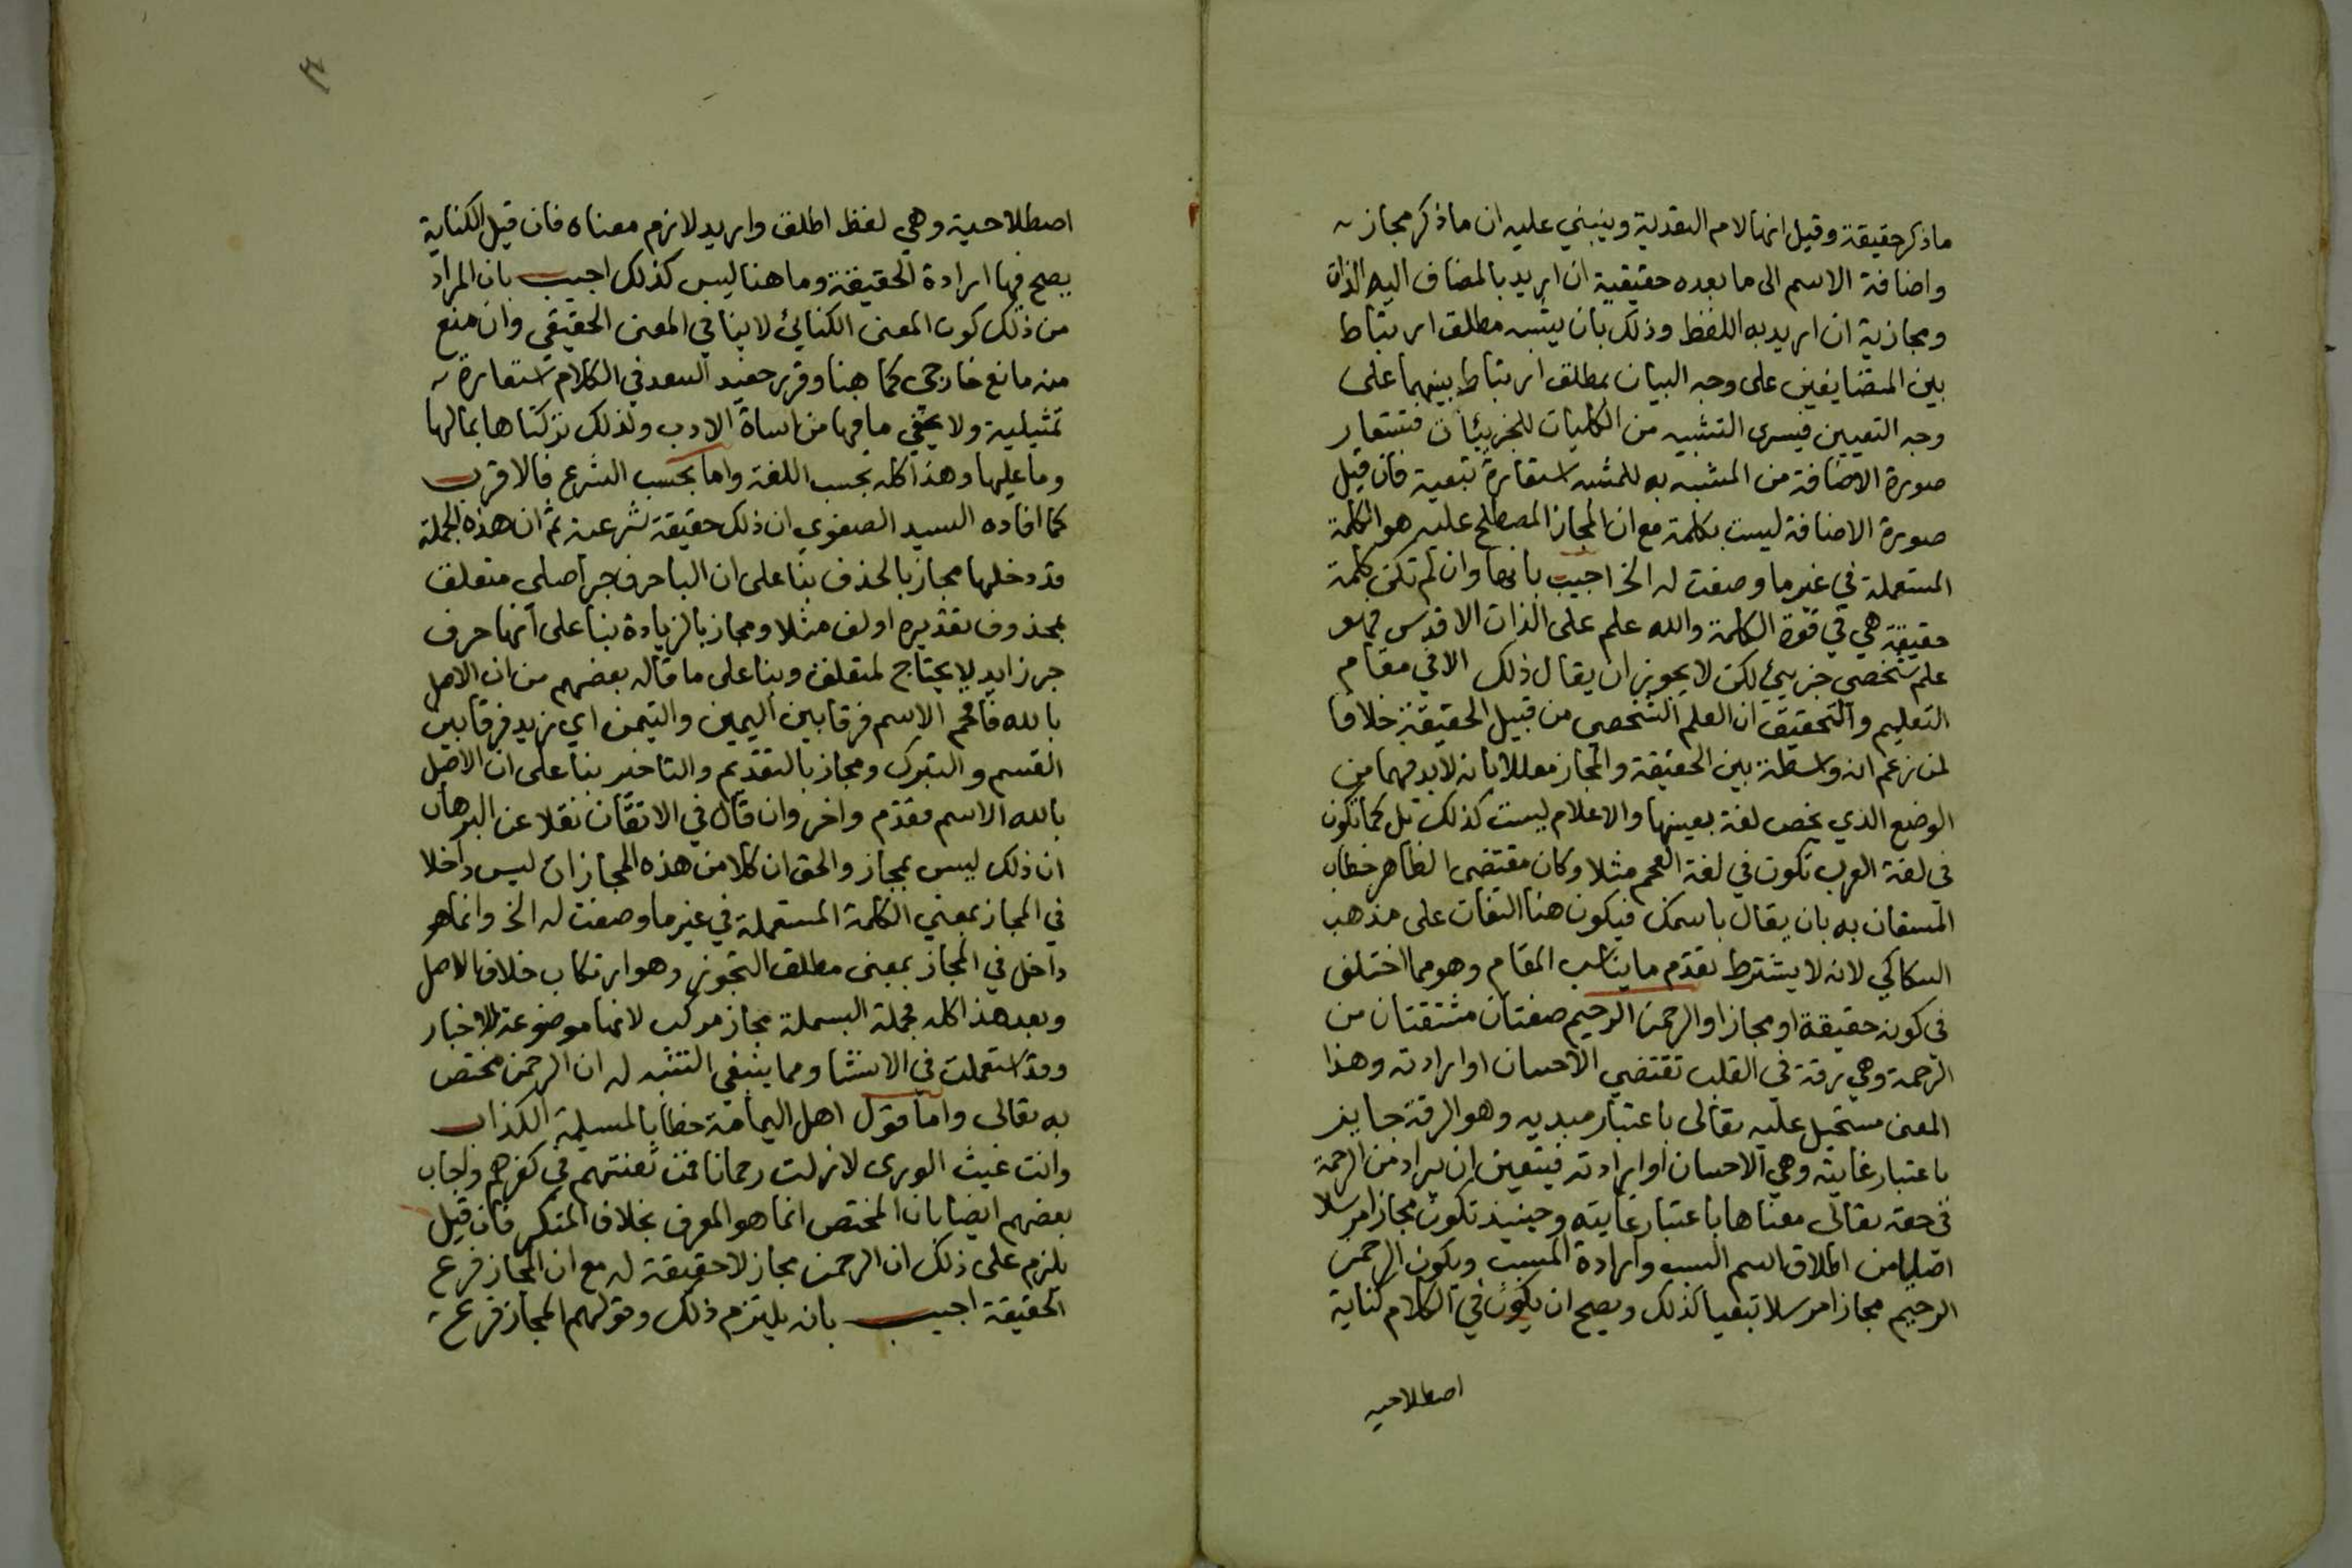 ماذكر حقيقة وقيل انها لام التعدية وينبني عليه ان ماذكر مجاز
واضافة الاسم الى ما بعده حقيقية ان اريد بالمضاف اليه الذات
ومجازية ان اريد به اللفظ وذلك بان يشبه مطلق ارتباط
بين المتضايفين على وجه البيان بمطلق ارتباط بينهما على
وجه التعيين فيسرى التشبيه من الكليات للجزئيات فتستعار
صورة الاضافة من المشبه به للمشبه استعارة تبعية فان قيل
صورة الاضافة ليست بكلمة مع ان المجاز المصطلح عليه هو الكلمة
المستعملة في غير ما وضعت له الخ اجيب بانها وان لم تكن كلمة
حقيقة هي في قوة الكلمة والله علم على الذات الاقدس فهو
علم شخصي جزيئ لكن لا يجوز ان يقال ذلك الا في مقام
التعليم والتحقيق ان العلم الشخصي من قبيل الحقيقة خلافا
لمن زعم انه واسطة بين الحقيقة والمجاز معللا بانه لابد فيهما من
الوضع الذي يخص لغة بعينها والاعلام ليست كذلك بل كما تكون
في لغة العرب تكون في لغة العجم مثلا وكان مقتضى الظاهر خطاب
المستعان به بان يقال باسمك فيكون هنا التفات على مذهب
السكاكي لانه لا يشترط تقدم ما يناسب المقام وهو مما اختلف
في كونه حقيقة او مجازا والرحمن الرحيم صفتان مشتقتان من
الرحمة وهي رقة في القلب تقتضي الاحسان او ارادته وهذا
المعنى مستحيل عليه تعالى باعتبار مبديه وهو الرقة جايز
باعتبار غايته وهي الاحسان او ارادته فيتعين ان يراد من الرحمة
في حقه تعالى معناها باعتبار غايته وحينيذ تكون مجازا مرسلا
اصليا من اطلاق اسم السبب وارادة المسبب ويكون الرحمن
الرحيم مجازا مرسلا تبعيا كذلك ويصح ان يكون في الكلام كناية
اصطلاحيه
اصطلاحية وهي لفظ اطلق واريد لازم معناه فان قيل الكناية
يصح فيها ارادة الحقيقة وما هنا ليس كذلك اجيب بان المراد
من ذلك كون المعنى الكنائي لا ينافي المعنى الحقيقي وان منع
منه مانع خارجي كما هنا وقرر حفيد السعد في الكلام استعارة
تمثيلية ولا يخفي ما فيها من اساة الادب ولذلك تركناها بما لها
وما عليها وهذا كله بحسب اللغة واما بحسب الشرع فالاقرب
كما افاده السيد الصفوي ان ذلك حقيقة شرعية ثم ان هذه الجملة
قد دخلها مجاز بالحذف بنا على ان البا حرف جر اصلي متعلق
بمحذوف تقديره اولف مثلا ومجاز بالزيادة بنا على انها حرف
جر زايد لا يحتاج لمتعلق وبنا على ما قاله بعضهم من ان الاصل
بالله فاقحم الاسم فرقا بين اليمين والتيمن اي زيد فرقا بين
القسم والتبرك ومجاز بالتقديم والتاخير بنا على ان الاصل
بالله الاسم فقدم واخر وان قال في الاتقان نقلا عن البرهان
ان ذلك ليس بمجاز والحق ان كلا من هذه المجازات ليس داخلا
في المجاز بمعني الكلمة المستعملة في غير ما وضعت له الخ وانما هو
داخل في المجاز بمعنى مطلق التجوز وهو ارتكاب خلاف الاصل
وبعد هذا كله فجملة البسملة مجاز مركب لانها موضوعة للاخبار
وقد استعملت في الانشا ومما ينبغي التنبه له ان الرحمن مختص
به تعالى واما قول اهل اليمامة خطابا لمسيلمة الكذاب
وانت غيث الورى لا زلت رحمانا فمن تعنتهم في كفرهم واجاب
بعضهم ايضا بان المختص انما هو المعرف بخلاف المنكر فان قيل
يلزم على ذلك ان الرحمن مجاز لا حقيقة له مع ان المجاز فرع
الحقيقة اجيب بانه يلتزم ذلك وقولهم المجاز فرع